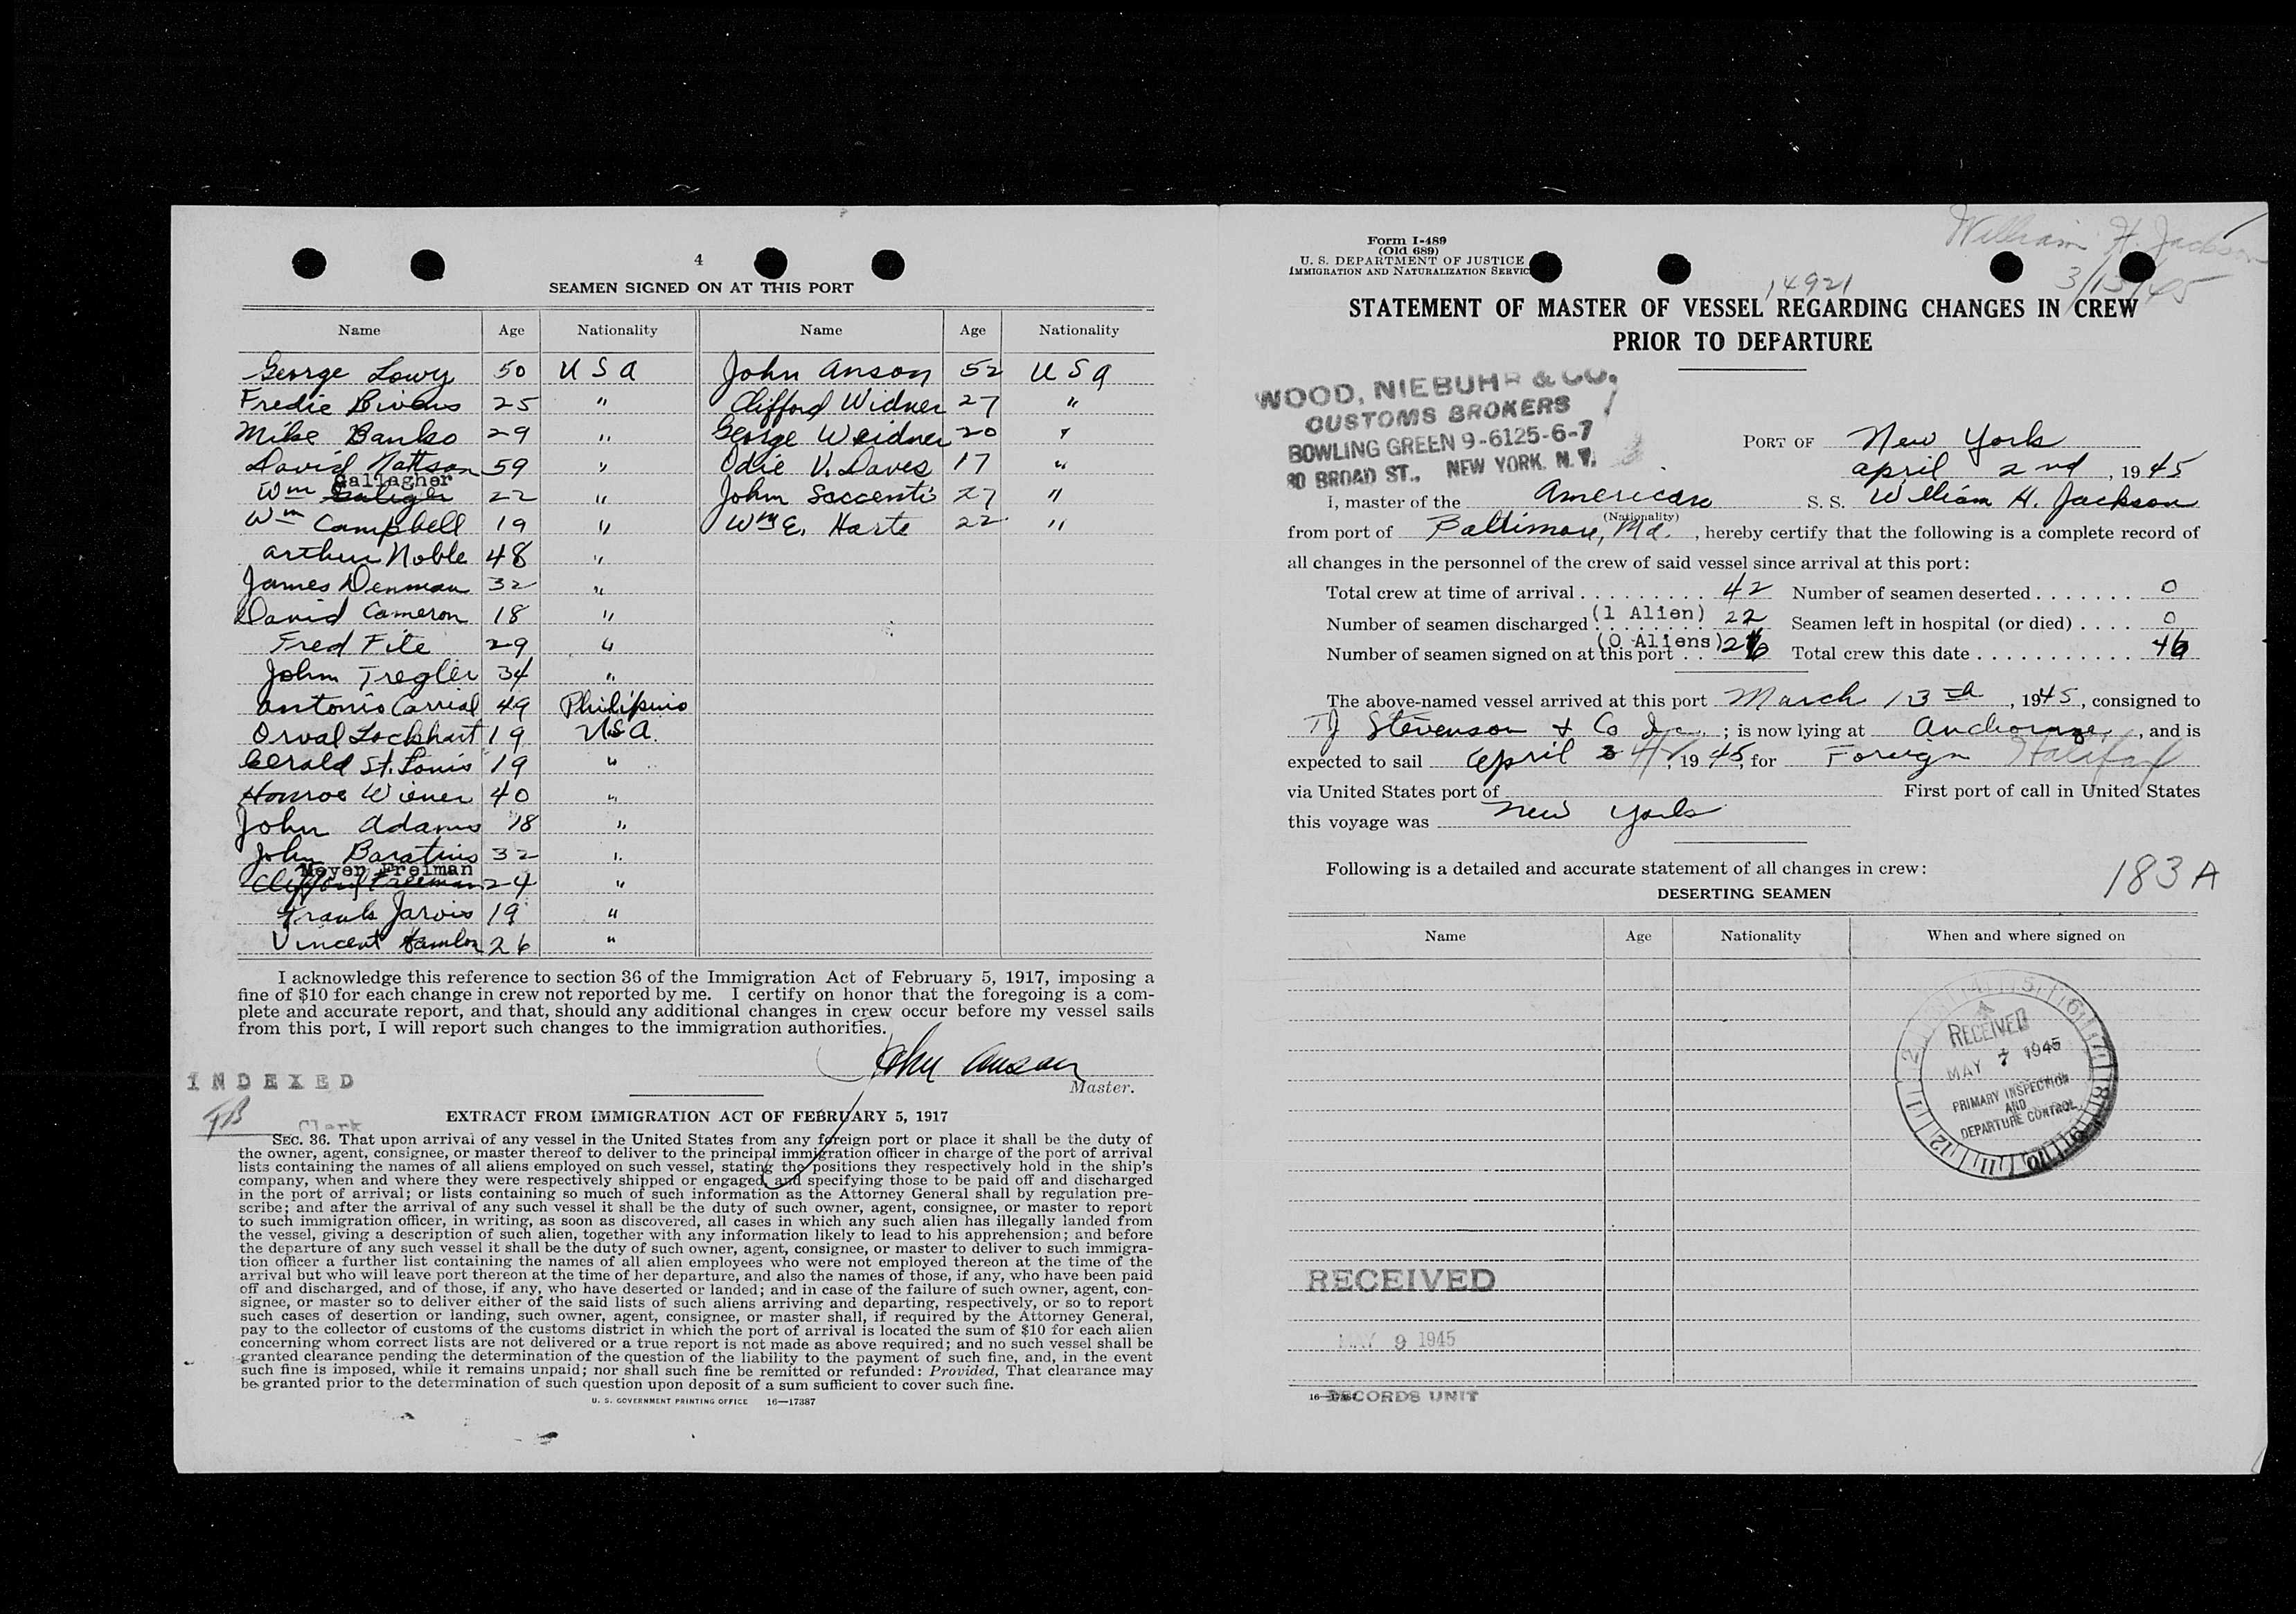 4
SEAMEN SIGNED ON AT THIS PORT
Name Age Nationality Name Age Nationality
George Lowy 50 USA John Anson 52 USA
Fredie Bivens 25 " Clifford Widner 27 "
Mike Banko 29 " George Weidner 20 "
David Nattson 59 " Odie V. Daves 17 "
Gallagher
Wm 22 " John Saccenti 27 "
Wm Campbell 19 " Wm E. Harte 22 "
Arthur Noble 48 "
James Denman 32 "
David Cameron 18 "
Fred Fite 29 "
John Tregler 34 "
Antonio Carrial 49 Philipino
Orval Lockhart 19 USA.
Gerald St. Louis 19 "
Monroe Wiener 40 "
John Adams 18 "
John Baratins 32 "
Meyer Freiman
Clifford Freeman 24 "
Frank Jarvis 19 "
Vincent Hamlon 26 "
I acknowledge this reference to section 36 of the Immigration Act of February 5, 1917, imposing a
fine of $10 for each change in crew not reported by me. I certify on honor that the foregoing is a com-
plete and accurate report, and that, should any additional changes in crew occur before my vessel sails
from this port, I will report such changes to the immigration authorities.
John Anson
Master.
INDEXED
TB
Clerk
EXTRACT FROM IMMIGRATION ACT OF FEBRUARY 5, 1917
SEC. 36. That upon arrival of any vessel in the United States from any foreign port or place it shall be the duty of
the owner, agent, consignee, or master thereof to deliver to the principal immigration officer in charge of the port of arrival
lists containing the names of all aliens employed on such vessel, stating the positions they respectively hold in the ship's
company, when and where they were respectively shipped or engaged, and specifying those to be paid off and discharged
in the port of arrival; or lists containing so much of such information as the Attorney General shall by regulation pre-
scribe; and after the arrival of any such vessel it shall be the duty of such owner, agent, consignee, or master to report
to such immigration officer, in writing, as soon as discovered, all cases in which any such alien has illegally landed from
the vessel, giving a description of such alien, together with any information likely to lead to his apprehension; and before
the departure of any such vessel it shall be the duty of such owner, agent, consignee, or master to deliver to such immigra-
tion officer a further list containing the names of all alien employees who were not employed thereon at the time of the
arrival but who will leave port thereon at the time of her departure, and also the names of those, if any, who have been paid
off and discharged, and of those, if any, who have deserted or landed; and in case of the failure of such owner, agent, con-
signee, or master so to deliver either of the said lists of such aliens arriving and departing, respectively, or so to report
such cases of desertion or landing, such owner, agent, consignee, or master shall, if required by the Attorney General,
pay to the collector of customs of the customs district in which the port of arrival is located the sum of $10 for each alien
concerning whom correct lists are not delivered or a true report is not made as above required; and no such vessel shall be
granted clearance pending the determination of the question of the liability to the payment of such fine, and, in the event
such fine is imposed, while it remains unpaid; nor shall such fine be remitted or refunded: Provided, That clearance may
be granted prior to the determination of such question upon deposit of a sum sufficient to cover such fine.
U. S. GOVERNMENT PRINTING OFFICE 16—17387
Form I-489
(Old 689)
U. S. DEPARTMENT OF JUSTICE
IMMIGRATION AND NATURALIZATION SERVIC
William H. Jackson
3/13/45
14921
STATEMENT OF MASTER OF VESSEL REGARDING CHANGES IN CREW
PRIOR TO DEPARTURE
WOOD, NIEBUHR & CO.
CUSTOMS BROKERS
BOWLING GREEN 9-6125-6-7
80 BROAD ST., NEW YORK, N.Y.
PORT OF New York
April 2nd, 1945
I, master of the American S. S. William H. Jackson
(Nationality)
from port of Baltimore, Md., hereby certify that the following is a complete record of
all changes in the personnel of the crew of said vessel since arrival at this port:
Total crew at time of arrival 42 Number of seamen deserted 0
Number of seamen discharged (1 Alien) 22 Seamen left in hospital (or died) 0
Number of seamen signed on at this port (0 Aliens) 26 Total crew this date 46
The above-named vessel arrived at this port March 13th, 1945, consigned to
TJ Stevenson & Co Inc.; is now lying at Anchorage, and is
expected to sail April 4, 1945, for Foreign Halifax
via United States port of First port of call in United States
this voyage was New York
Following is a detailed and accurate statement of all changes in crew:
183 A
DESERTING SEAMEN
Name Age Nationality When and where signed on
RECEIVED
MAY 7 1945
PRIMARY INSPECTION
AND
DEPARTURE CONTROL
RECEIVED
MAY 9 1945
RECORDS UNIT